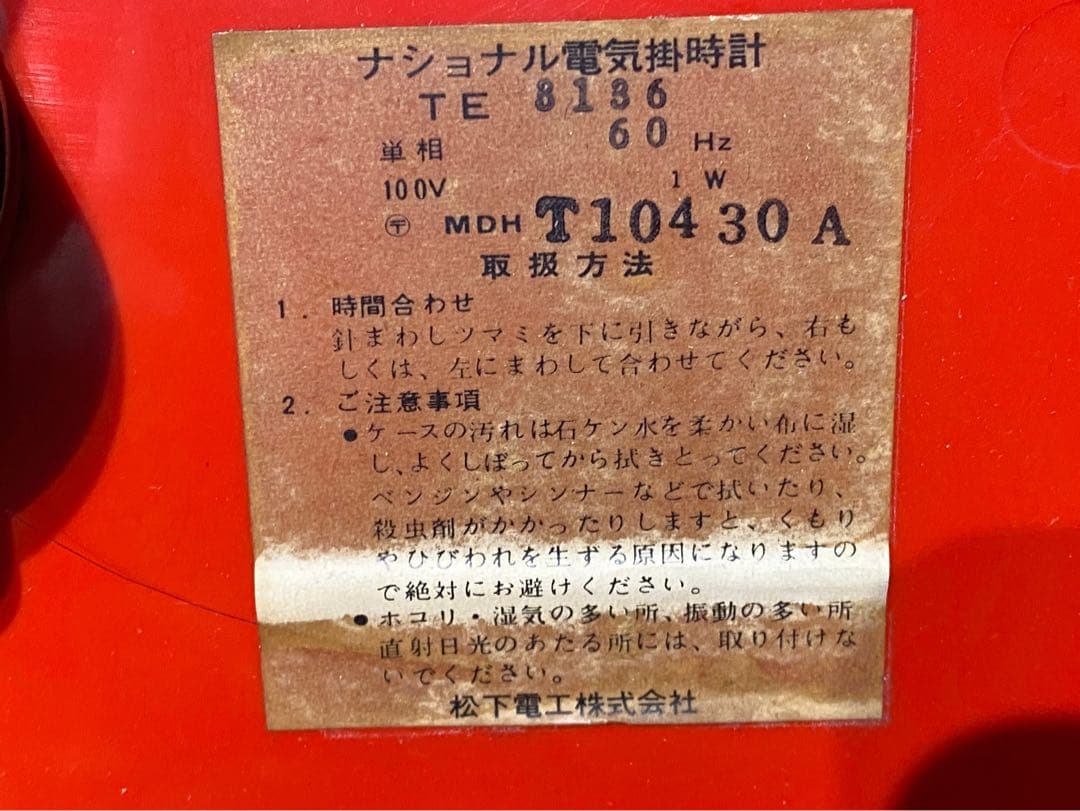 ナショナル電気掛時計
TE 8136
単相 60 Hz
100V 1 W
〒 MDH T10430A
取扱方法
1. 時間合わせ
針まわしツマミを下に引きながら、右も
しくは、左にまわして合わせてください。
2. ご注意事項
●ケースの汚れは石ケン水を柔かい布に湿
し、よくしぼってから拭きとってください。
ベンジンやシンナーなどで拭いたり、
殺虫剤がかかったりしますと、くもり
やひびわれを生ずる原因になりますの
で絶対にお避けください。
●ホコリ・湿気の多い所、振動の多い所
直射日光のあたる所には、取り付けな
いでください。
松下電工株式会社